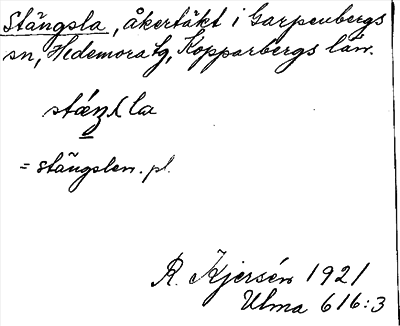 Stängsla, åkertäkt i Garpenbergs
sn, Hedemora tg, Kopparbergs län.
= stängslen. pl.
R. Kjersén 1921
Ulma 616:3